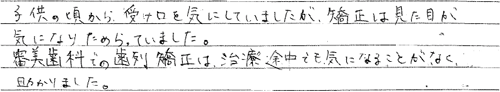 子供の頃から、受け口を気にしていましたが、矯正は見た目が
気になり、ためらっていました。
審美歯科での歯列矯正は、治療途中でも気になることがなく、
助かりました。